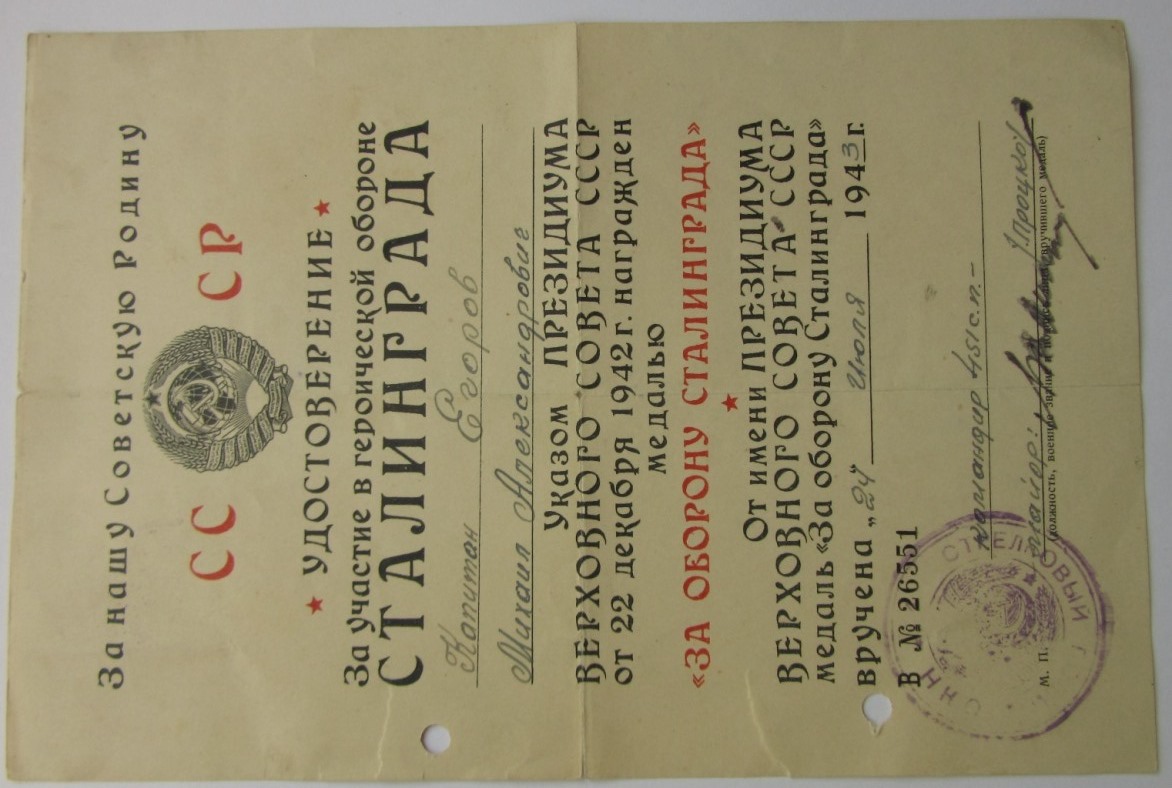 За нашу Советскую Родину
СС СР
УДОСТОВЕРЕНИЕ
За участие в героической обороне
СТАЛИНГРАДА
Капитан Егоров
Михаил Александрович
Указом ПРЕЗИДИУМА
ВЕРХОВНОГО СОВЕТА СССР
от 22 декабря 1942 г. награжден
медалью
«ЗА ОБОРОНУ СТАЛИНГРАДА»
От имени ПРЕЗИДИУМА
ВЕРХОВНОГО СОВЕТА СССР
медаль «За оборону Сталинграда»
вручена „24" Июля 1943 г.
В № 26551
командир 451 с.п. -
майор:
М. П. (должность, военное звание и вручившего медаль)
СТРЕЛКОВЫЙ